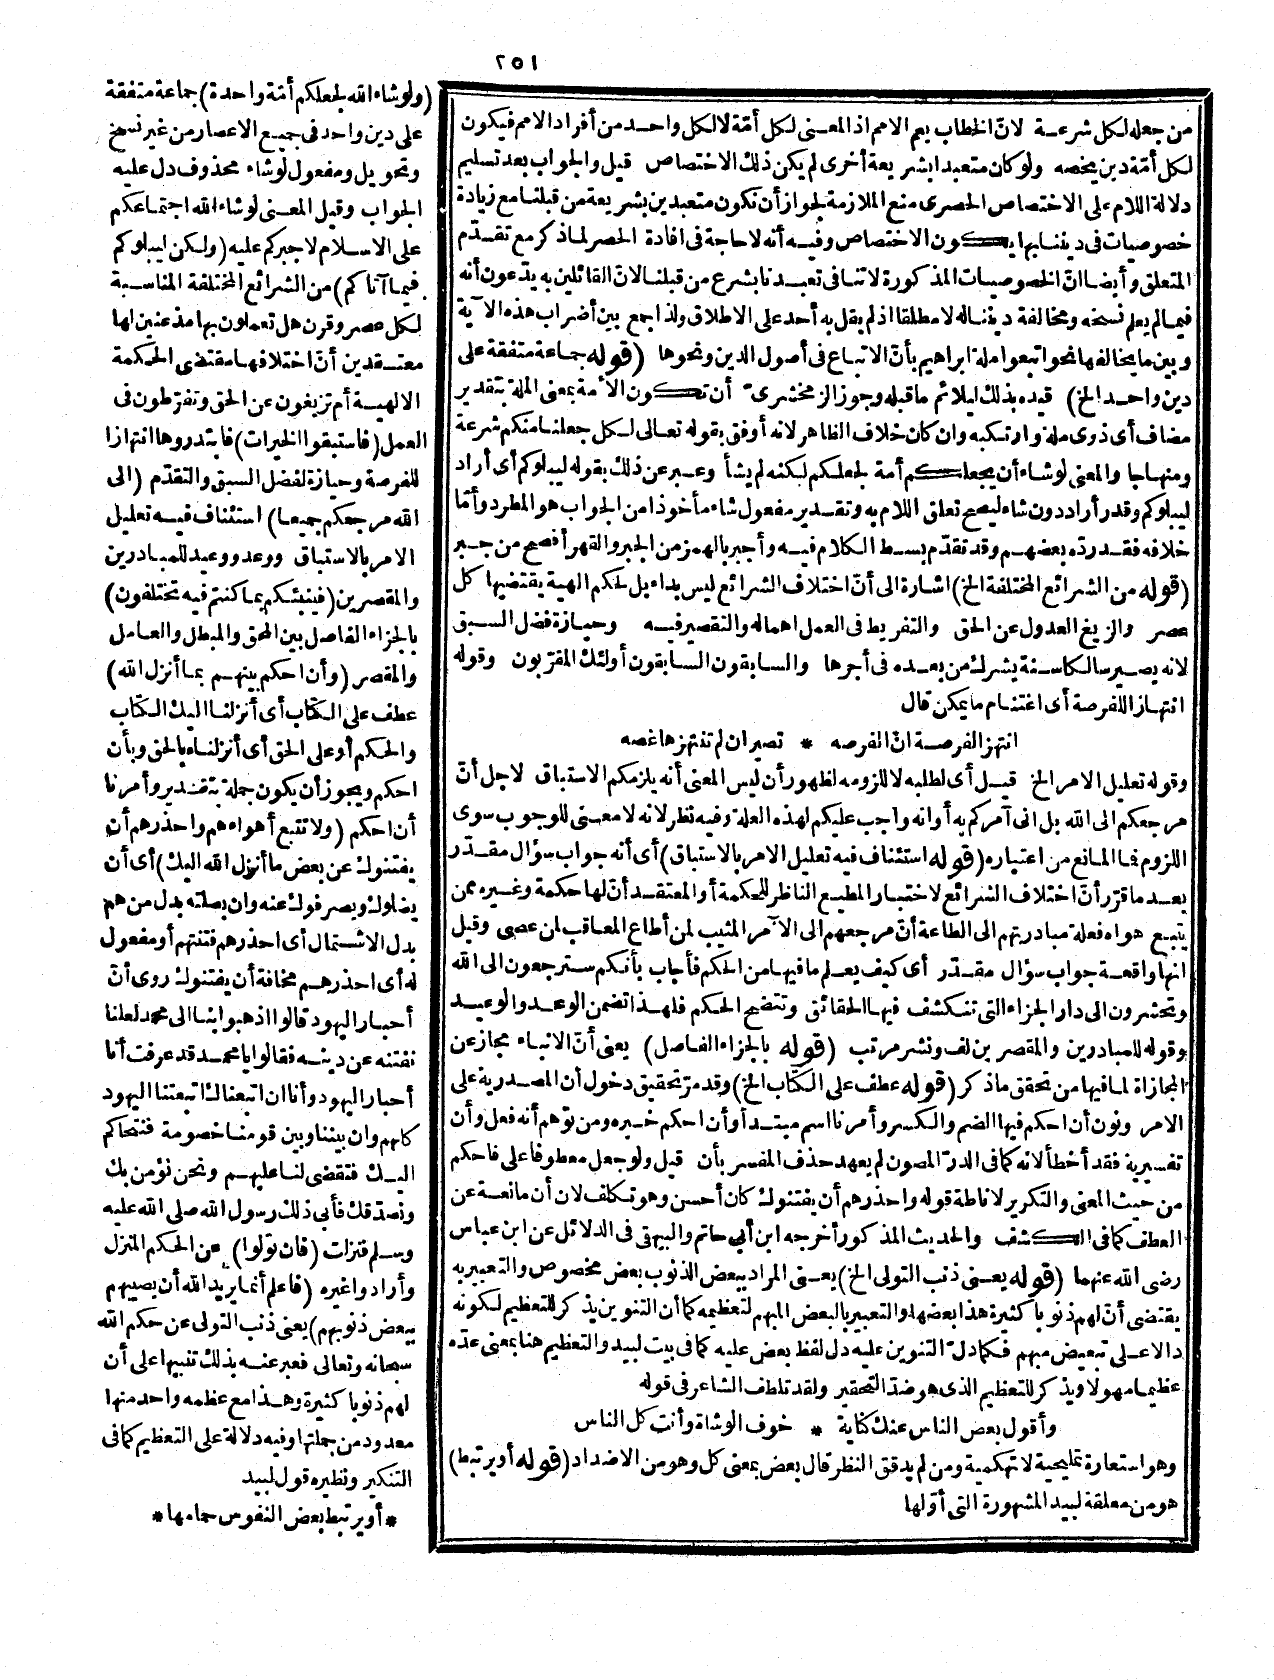 ٢٥١
من جعله لكل شرعة لانّ الخطاب يعم الامم اذ المعنى لكل أمّة لا لكل واحد من أفراد الامم فيكون
لكل أمّة دين يخصه ولو كان متعبدا بشريعة أخرى لم يكن ذلك الاختصاص قيل والجواب بعد تسليم
دلالة اللام على الاختصاص الحصرى منع الملازمة لجواز أن نكون متعبدين بشريعة من قبلنا مع زيادة
خصوصيات فى ديننا بها يكون الاختصاص وفيه أنه لا حاجة فى افادة الحصر لماذكر مع تقدّم
المتعلق وأيضا انّ الخصوصيات المذكورة لا تنافى تعبدنا بشرع من قبلنا لانّ القائلين به يدّعون أنه
فيما لم يعلم نسخه ومخالفة ديننا له لا مطلقا اذ لم يقل به أحد على الاطلاق ولذا جمع بين أضراب هذه الآية
وبين ما يخالفها نحو اتبعوا ملة ابراهيم بأنّ الاتباع فى أصول الدين ونحوها (قوله جماعة متفقة على
دين واحد الخ) قيده بذلك ليلائم ماقبله وجوز الزمخشرىّ أن تكون الامة بمعنى الملة بتقدير
مضاف أى ذوى ملة وارتكبه وان كان خلاف الظاهر لانه أوفق بقوله تعالى لكل جعلنا منكم شرعة
ومنهاجا والمعنى لوشاء أن يجعلكم أمة لجعلكم لكنه لم يشأ وعبر عن ذلك بقوله ليبلوكم أى أراد
ليبلوكم وقدر أراد دون شاء ليصح تعلق اللام به وتقدير مفعول شاء مأخوذا من الجواب هو المطرد وأمّا
خلافه فقد ردّه بعضهم وقد تقدّم بسط الكلام فيه وأجبر بالهمز من الجبر والقهر أفصح من جبر
(قوله من الشرائع المختلفة الخ) اشارة الى أنّ اختلاف الشرائع ليس بداء بل لحكم الهية يقتضيها كل
عصر والزيغ العدول عن الحق والتفريط فى العمل اهماله والتقصير فيه وحيازة فضل السبق
لانه يصير سالكا سنة يشرك من بعده فى أجرها والسابقون السابقون أولئك المقرّبون وقوله
انتهازا للفرصة أى اغتنام ما يمكن قال
انتهز الفرصة انّ الفرصه * تصير ان لم تنتهزها غصه
وقوله تعليل الامر الخ قيل أى لطلبه لا للزومه لظهور أن ليس المعنى أنه يلزمكم الاستباق لاجل أنّ
مرجعكم الى الله بل انى آمركم به أو انه واجب عليكم لهذه العلة وفيه نظر لانه لا معنى للوجوب سوى
اللزوم فما المانع من اعتباره (قوله استئناف فيه تعليل الامر بالاستباق) أى أنه جواب سؤال مقدّر
بعد ما قرّر أنّ اختلاف الشرائع لاختبار المطيع الناظر للحكمة أو المعتقد أنّ لها حكمة وغيره ممن
يتبع هواه فعلة مبادرتهم الى الطاعة أنّ مرجعهم الى الآمر المثيب لمن أطاع المعاقب لمن عصى وقيل
انها واقعة جواب سؤال مقدّر أى كيف يعلم ما فيها من الحكم فأجاب بأنكم سترجعون الى الله
وتحشرون الى دار الجزاء التى تنكشف فيها الحقائق وتتضح الحكم فلهذا تضمن الوعد والوعيد
وقوله للمبادرين والمقصرين لف ونشر مرتب (قوله بالجزاء الفاصل) يعنى أنّ الانباء مجاز عن
المجازاة لما فيها من تحقق ماذكر (قوله عطف على الكتاب الخ) وقد مرّ تحقيق دخول أن المصدرية على
الامر ونون أن احكم فيها الضم والكسر وأمرنا اسم مبتدأ وأن احكم خبره ومن توهم أنه فعل وأن
تفسيرية فقد أخطأ لانه كما فى الدرّ المصون لم يعهد حذف المفسر بأن قيل ولو جعل معطوفا على فاحكم
من حيث المعنى والتكرير لاناطة قوله واحذرهم أن يفتنوك كان أحسن وهو تكلف لان أن مانعة عن
العطف كما فى الكشف والحديث المذكور أخرجه ابن أبى حاتم والبيهقى فى الدلائل عن ابن عباس
رضى الله عنهما (قوله يعنى ذنب التولى الخ) يعنى المراد ببعض الذنوب بعض مخصوص والتعبير به
يقتضى أنّ لهم ذنوبا كثيرة هذا بعضها والتعبير بالبعض المبهم لتعظيمه كما أن التنوين يذكر للتعظيم لكونه
دالا على تبعيض مبهم فكما دلّ التنوين عليه دل لفظ بعض عليه كما فى بيت لبيد والتعظيم هنا بمعنى عدّه
عظيما مهولا ويذكر للتعظيم الذى هو ضدّ التحقير ولقد تلطف الشاعر فى قوله
وأقول بعض الناس عنك كناية * خوف الوشاة وأنت كل الناس
وهو استعارة تمليحية لا تهكمية ومن لم يدقق النظر قال بعض بمعنى كل وهو من الاضداد (قوله أو يرتبط)
هو من معلقة لبيد المشهورة التى أوّلها
(ولوشاء الله لجعلكم أمّة واحدة) جماعة متفقة
على دين واحد فى جميع الاعصار من غير نسخ
وتحويل ومفعول لوشاء محذوف دل عليه
الجواب وقيل المعنى لوشاء الله اجتماعكم
على الاسلام لاجبركم عليه (ولكن ليبلوكم
فيما آتاكم) من الشرائع المختلفة المناسبة
لكل عصر وقرن هل تعملون بها مذعنين لها
معتقدين أنّ اختلافها مقتضى الحكمة
الالهية أم تزيغون عن الحق وتفرّطون فى
العمل (فاستبقوا الخيرات) فابتدروها انتهازا
للفرصة وحيازة لفضل السبق والتقدّم (الى
الله مرجعكم جميعا) استئناف فيه تعليل
الامر بالاستباق ووعد ووعيد للمبادرين
والمقصرين (فينبئكم بما كنتم فيه تختلفون)
بالجزاء الفاصل بين المحق والمبطل والعامل
والمقصر (وأن احكم بينهم بما أنزل الله)
عطف على الكتاب أى أنزلنا اليك الكتاب
والحكم أو على الحق أى أنزلناه بالحق وبأن
احكم ويجوز أن يكون جملة بتقدير وأمرنا
أن احكم (ولا تتبع أهواءهم واحذرهم أن
يفتنوك عن بعض ما أنزل الله اليك) أى أن
يضلوك ويصرفوك عنه وان بصلته بدل من هم
بدل الاشتمال أى احذرهم فتنتهم أو مفعول
له أى احذرهم مخافة أن يفتنوك روى أنّ
أحبار اليهود قالوا اذهبوا بنا الى محمد لعلنا
نفتنه عن دينه فقالوا يا محمد قد عرفت أنا
أحبار اليهود وأنا ان اتبعناك اتبعتنا اليهود
كلهم وان بيننا وبين قومنا خصومة فنتحاكم
اليك فتقضى لنا عليهم ونحن نؤمن بك
ونصدّقك فأبى ذلك رسول الله صلى الله عليه
وسلم فنزلت (فان تولوا) عن الحكم المنزل
وأرادوا غيره (فاعلم أنما يريد الله أن يصيبهم
ببعض ذنوبهم) يعنى ذنب التولى عن حكم الله
سبحانه وتعالى فعبر عنه بذلك تنبيها على أن
لهم ذنوبا كثيرة وهذا مع عظمه واحد منها
معدود من جملتها وفيه دلالة على التعظيم كما فى
التنكير ونظيره قول لبيد
* أو يرتبط بعض النفوس حمامها *